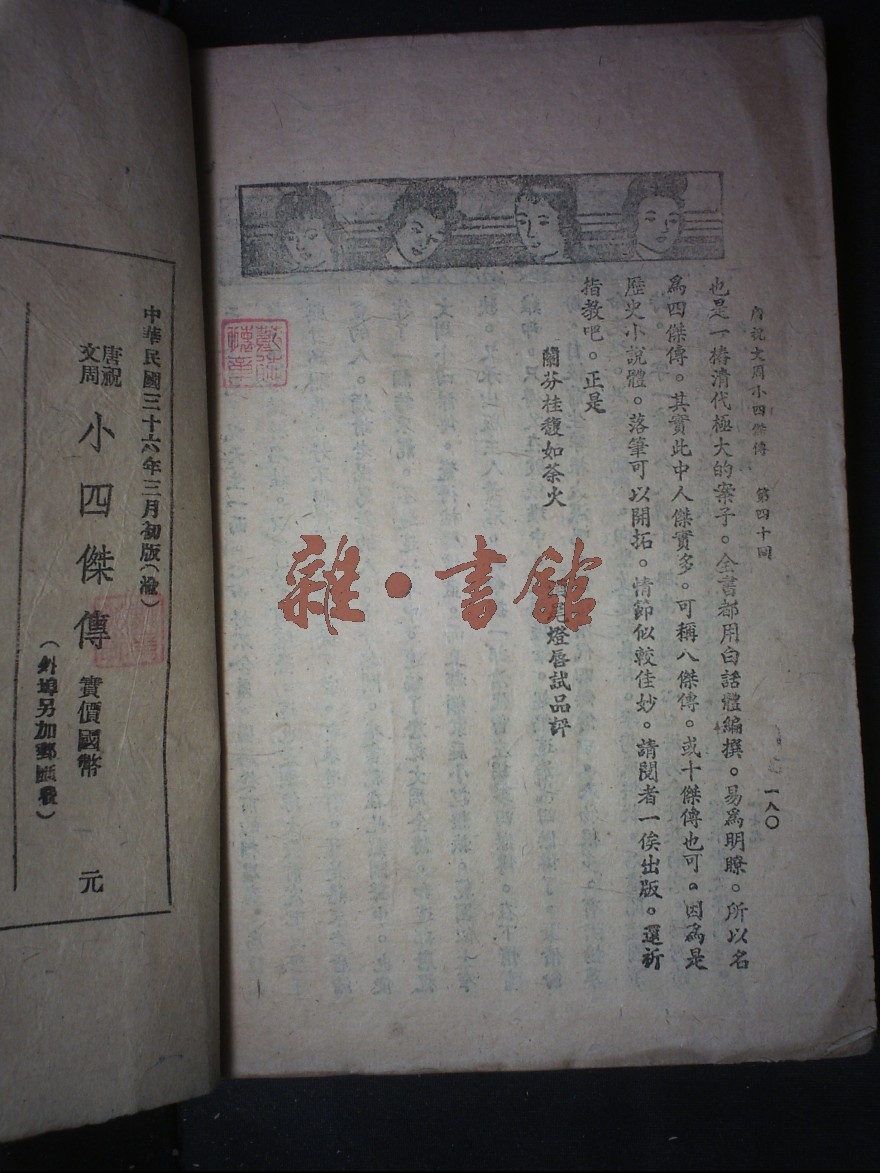 唐祝文周小四傑傳　第四十回
一八〇
也是一樁清代極大的案子。全書都用白話體編撰。易爲明瞭。所以名
爲四傑傳。其實此中人傑實多。可稱八傑傳。或十傑傳也可。因爲是
歷史小說體。落筆可以開拓。情節似較佳妙。請閱者一俟出版。還祈
指教吧。正是
蘭芬桂馥如茶火
燈唇試品評
雜·書館
中華民國三十六年三月初版(渝)
唐祝
文周
小四傑傳　實價國幣　元
(外埠另加郵匯費)